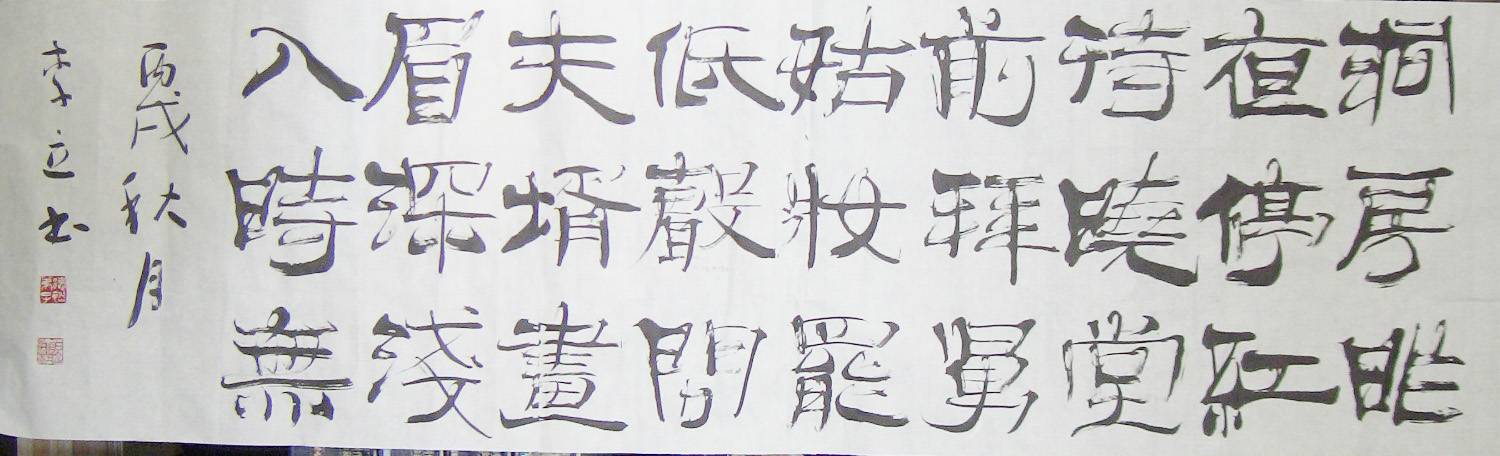 洞房昨
夜停紅
待曉堂
前拜舅
姑妝罷
低聲問
夫婿畫
眉深淺
入時無
丙戌秋月
李立书